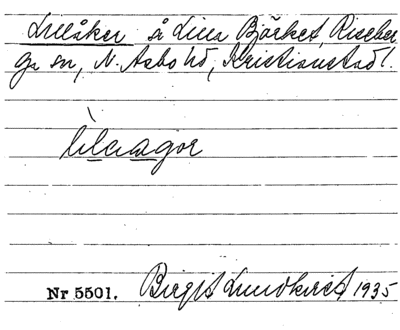 Lillåker å Lilla Björket, Riseber-
ga sn, N. Åsbo hd, Kristianstad l.
lìlaagor
Nr 5501. Birgit Lundkvist 1935